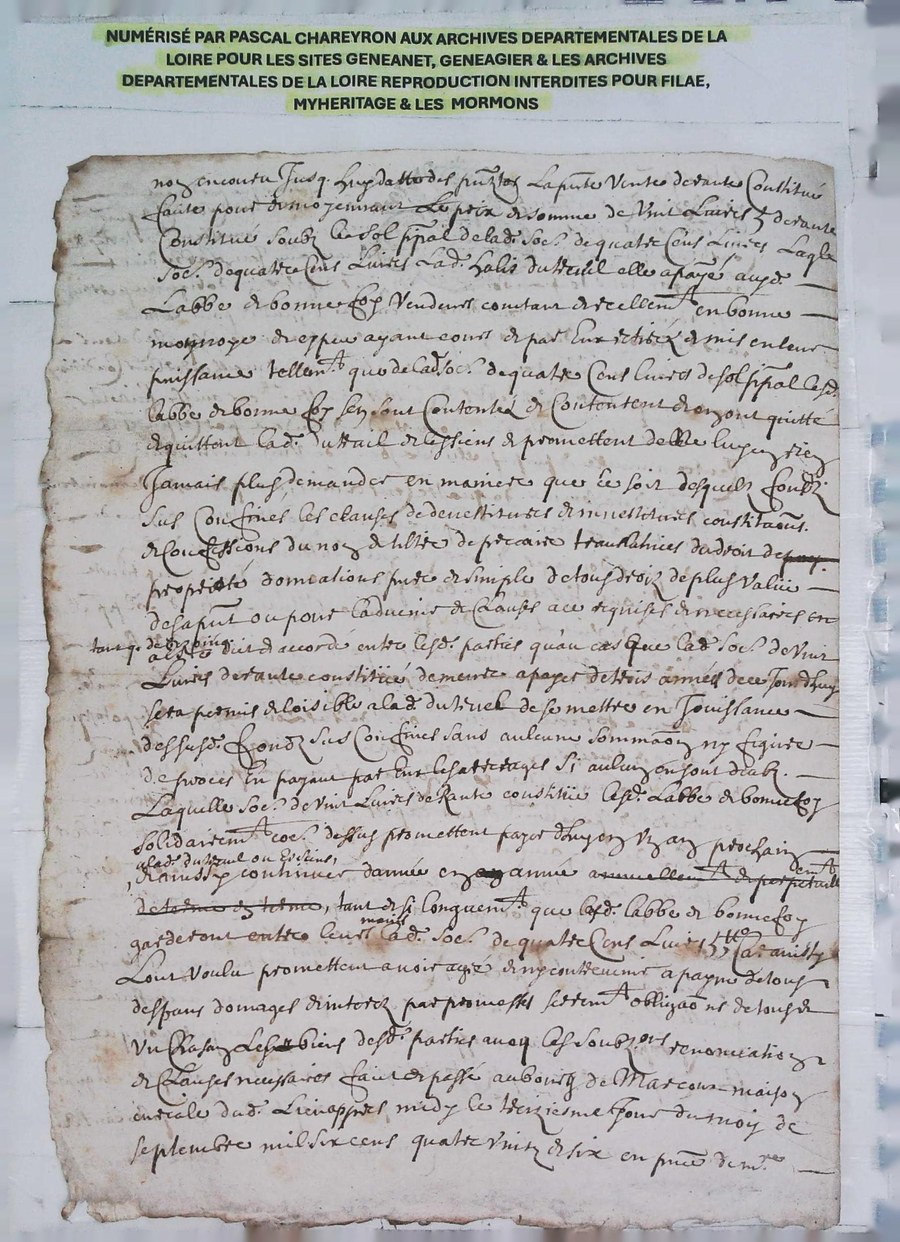 NUMÉRISÉ PAR PASCAL CHAREYRON AUX ARCHIVES DEPARTEMENTALES DE LA
LOIRE POUR LES SITES GENEANET, GENEAGIER & LES ARCHIVES
DEPARTEMENTALES DE LA LOIRE REPRODUCTION INTERDITES POUR FILAE,
MYHERITAGE & LES MORMONS
non encouru Jusq. huy datte des pntes La pnte Vente de rante Constitué
faite pour & moyennant Le prix & somme de Vint Livres de rante
Constitué soubz le sol ppal de lad. soe. de quatre Cens Livres Laqle
soe. de quatre Cens Livres Lad. du teuil elle a payé ausd.
Labbe & bonnefoy Vendeurs contant & reellemt en bonne
monnoye & espece ayant cours & par Eux retiré & mis en leur
puissance tellemt que de lad. soe. de quatre Cens livres de sol ppal lesd.
labbe & bonnefoy sen sont Contentés & Contentent & en ont quitté
& quittent lad. du & les siens & promettent de ne luy en rien
Jamais plus demander en maniere que ce soit desquelz fondz
sus Confines les clauses de devestitures & investitures constitutions.
& Confessions du nom & tiltre de precaire translatrices du droit de
proprieté donnations pure & simple de tous droitz de plus Value
de sa pnt ou pour Ladvenir & Clauses ace requises & necessaires en
a esté dit & accordé entre lesd. parties qu'au cas que lad. soe. de Vint
Livres de rante constituée demeure a payer de trois années de ce Jourdhuy
sera permis & loisible a lad. du teuil de se mettre en Jouissance
dessusd. fondz sus Confines sans aulcune sommaon ny figure
de proces En payant par Eux les arrerages si aulcun en sont deubz.
Laquelle soe. de Vint Livres de Rante constitué lesd. Labbe & bonnefoy
solidairemt coe. dessus promettent payer d'huy en Un an prochain
a lad. du teuil ou Es siens,
& ainssy continuer d'année en année annuellemt & perpetuellemt
de terme en terme, tant & si longuemt que lesd. labbe & bonnefoy
garderont entre leurs mains lad. soe. de quatre Cens Livres Car ainssy
Lont Voulu promettent avoir agré & ny contrevenir a payne de tous
despans domages & interetz par promesses sermt obligaons de tous &
Un Chascun Les biens desd. parties avoq les soubzons renonciations
& Clauses necessaires fait & passé au bourg de Marcoux maison
curiale dud. Lieu appres midy le treiziesme Jour du moy de
septembre mil six cens quatre Vintz & six en pnce de mre